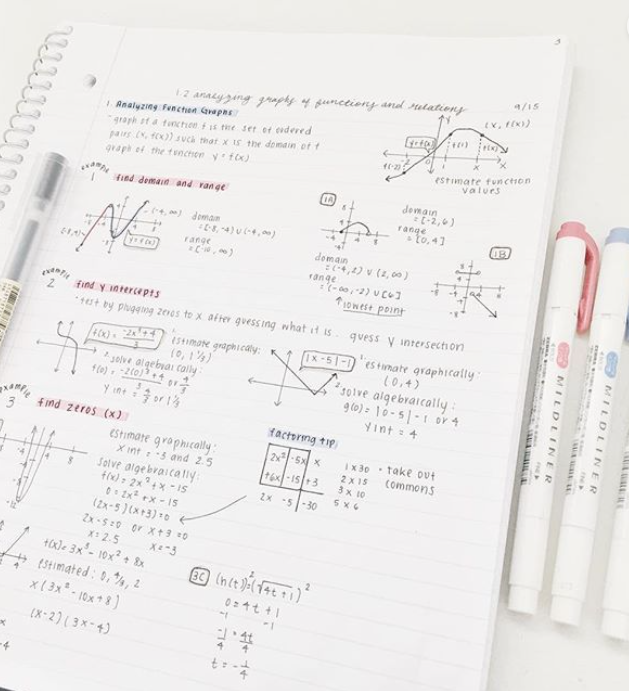 3
1.2 analyzing graphs of functions and relations 9/15
1. Analyzing Function Graphs
- graph of a function f is the set of ordered
pairs (x, f(x)) such that x is the domain of f
graph of the function y = f(x)
y
(x, f(x))
y=f(x)
f(1)
f(x)
-2
0
1
x
x
f(-2)
estimate function
values
example
1 find domain and range
(-4, ∞)
(-8,-4)
y=f(x)
domain
= [-8, -4) ∪ (-4, ∞)
range
= [-10, ∞)
1A
domain
= [-2, 6]
range
= [0, 4]
domain
= (-4, 2) ∪ (2, ∞)
range
= (-∞, -2) ∪ [6]
↑ lowest point
1B
example
2 find y intercepts
· test by plugging zeros to x after guessing what it is. guess y intersection
f(x) = -2x³+4 / 3
¹ estimate graphically:
(0, 1⅓)
² solve algebraically:
f(0) = -2(0)³+4 / 3 or 4/3
y int = 4/3 or 1⅓
|x-5|-1
¹ estimate graphically:
(0,4)
² solve algebraically:
g(0) = |0-5|-1 or 4
y int = 4
example
3 find zeros (x)
estimate graphically:
x int = -3 and 2.5
solve algebraically:
f(x) = 2x² + x - 15
0 = 2x² + x - 15
(2x-5)(x+3)=0
2x-5=0 or x+3=0
x=2.5 x=-3
factoring tip
2x² -5x x
+6x -15 +3
2x -5 -30
1x30
2x15
3x10
5x6
· take out
commons
f(x)= 3x³ - 10x² + 8x
estimated: 0, 4/3, 2
x(3x² - 10x + 8)
(x-2)(3x-4)
3C (h(t))² = (√4t+1)²
0 = 4t + 1
-1 -1
-1/4 = 4t/4
t = -1/4
MILDLINER
MILDLINER